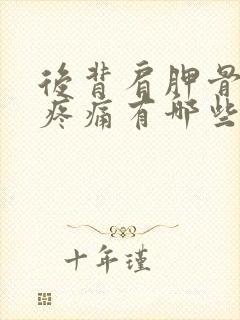 後背肩胛骨
疼痛有哪些
十年瑾